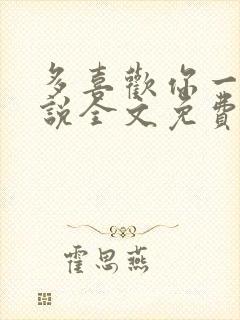 多喜歡你一
說全文免費
霍思燕